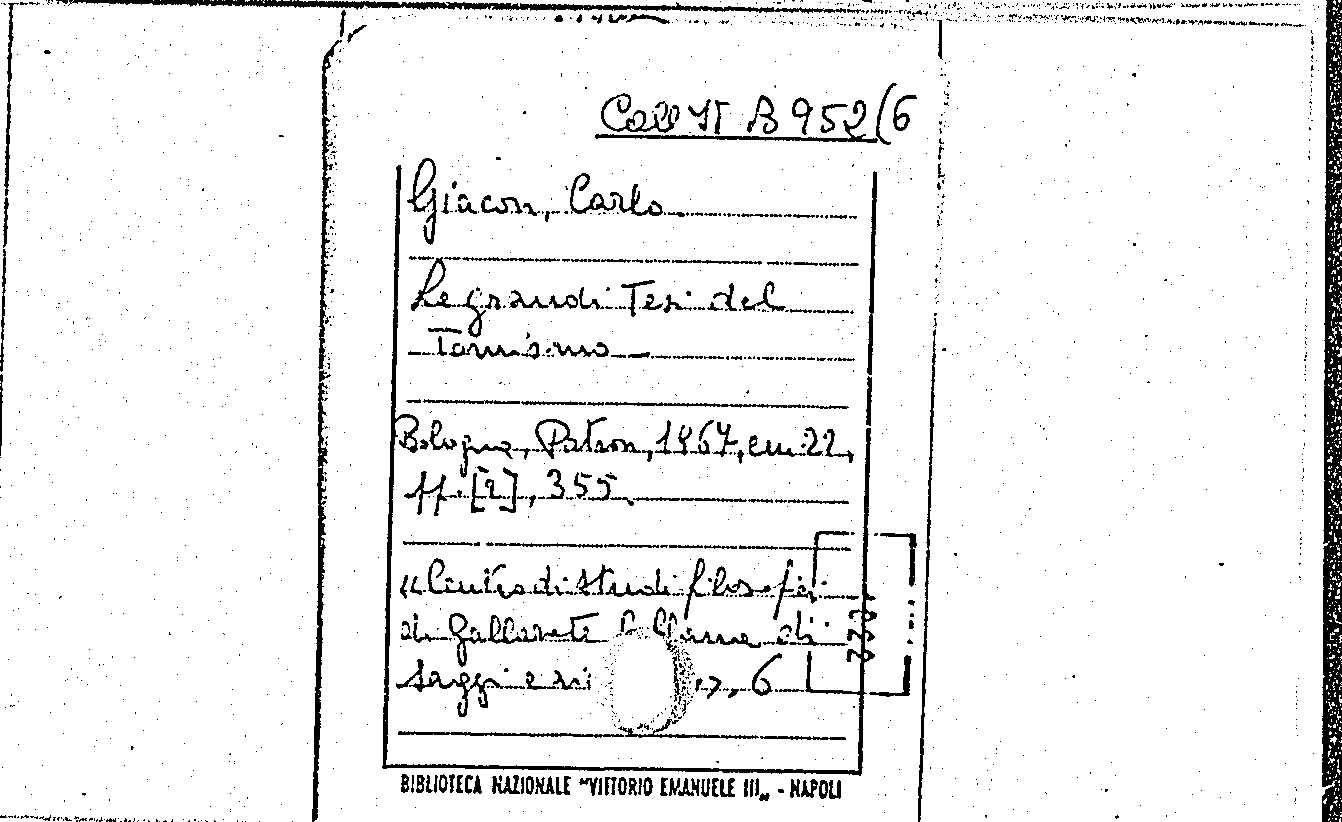 Coll It B 952(6
Giacon, Carlo.
Le grandi Tesi del
Tomismo
Bologna, Patron, 1967, cm. 22,
pp. [2], 355.
«Centro di studi filosofici
di Gallarate Collana di
saggi e ri », 6
BIBLIOTECA NAZIONALE "VITTORIO EMANUELE III„ - NAPOLI